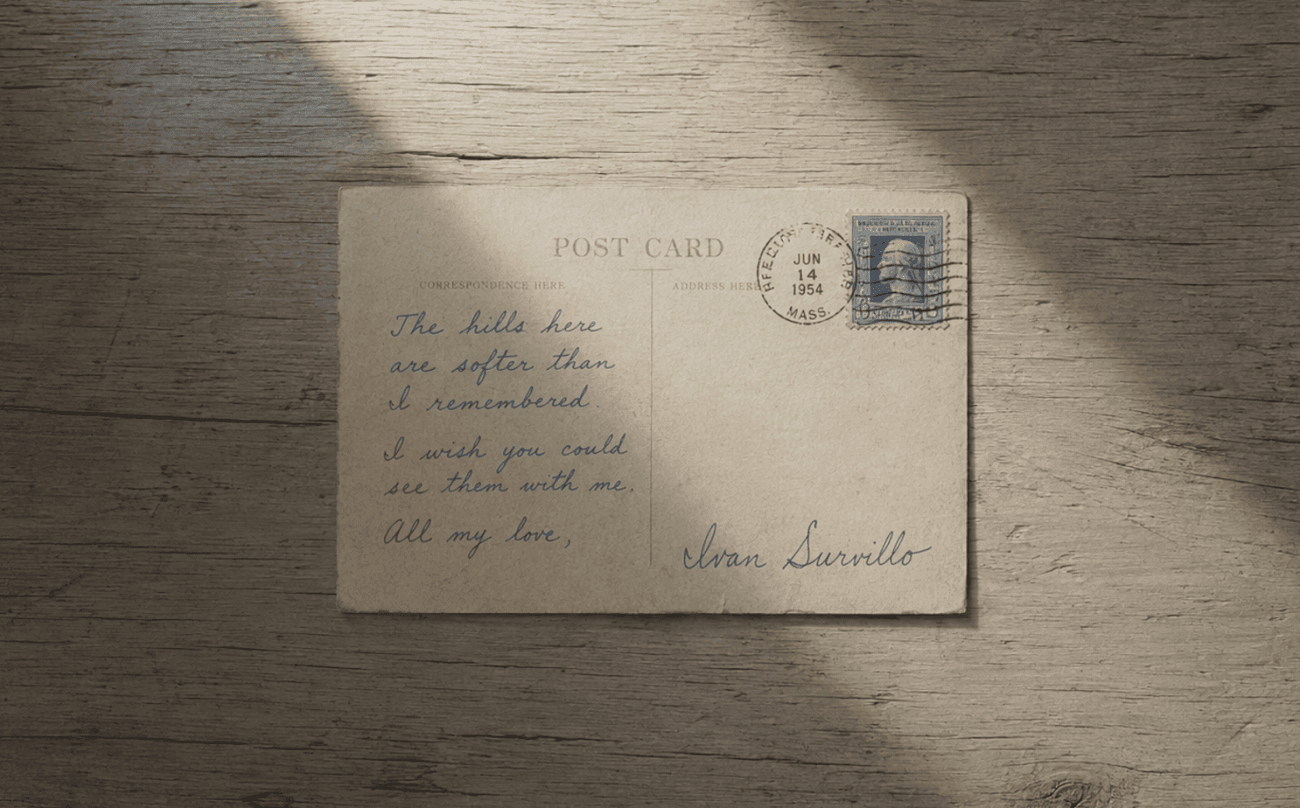 POST CARD
CORRESPONDENCE HERE
ADDRESS HERE
JUN
14
1954
MASS.
The hills here
are softer than
I remembered.
I wish you could
see them with me.
All my love,
Ivan Survillo